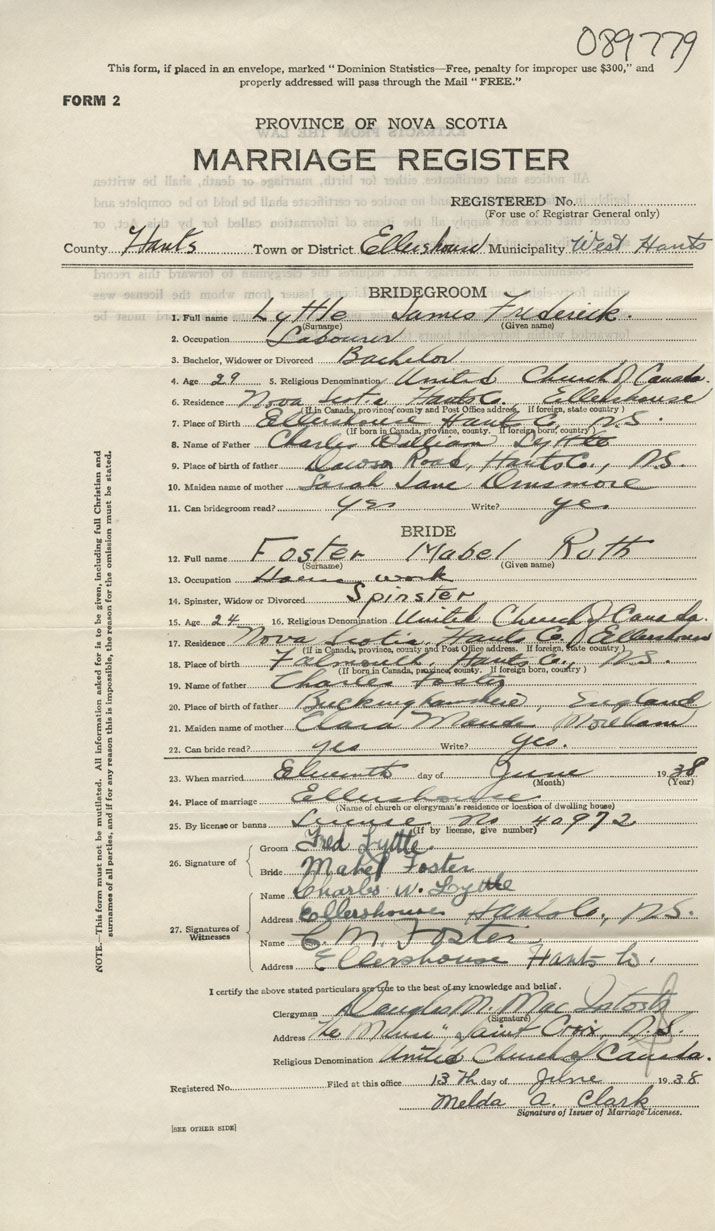 089779
This form, if placed in an envelope, marked "Dominion Statistics—Free, penalty for improper use $300," and
properly addressed will pass through the Mail "FREE."
FORM 2
PROVINCE OF NOVA SCOTIA
MARRIAGE REGISTER
REGISTERED No.
(For use of Registrar General only)
County Hants Town or District Ellershouse Municipality West Hants
BRIDEGROOM
1. Full name Lyttle James Frederick.
(Surname) (Given name)
2. Occupation Labourer
3. Bachelor, Widower or Divorced Bachelor
4. Age 29 5. Religious Denomination United Church of Canada.
6. Residence Nova Scotia Hants Co. Ellershouse
(If in Canada, province, county and Post Office address. If foreign, state country)
7. Place of Birth Ellershouse Hants Co. N.S.
(If born in Canada, province, county. If foreign born, country)
8. Name of Father Charles William Lyttle
9. Place of birth of father Dawson Road, Hants Co., N.S.
10. Maiden name of mother Sarah Jane Dinsmore
11. Can bridegroom read? yes Write? yes
BRIDE
12. Full name Foster Mabel Ruth
(Surname) (Given name)
13. Occupation House work
14. Spinster, Widow or Divorced Spinster
15. Age 24 16. Religious Denomination United Church of Canada.
17. Residence Nova Scotia, Hants Co. Ellershouse
(If in Canada, province, county and Post Office address. If foreign, state country)
18. Place of birth Falmouth, Hants Co., N.S.
(If born in Canada, province, county. If foreign born, country)
19. Name of father Charles Foster
20. Place of birth of father Buckinghamshire, England
21. Maiden name of mother Clara Maude
22. Can bride read? yes Write? yes.
23. When married Eleventh day of June 1938
(Month) (Year)
24. Place of marriage Ellershouse
(Name of church or clergyman's residence or location of dwelling house)
25. By license or banns License No 40972
(If by license, give number)
26. Signature of
Groom Fred Lyttle.
Bride Mabel Foster
27. Signatures of Witnesses
Name Charles W. Lyttle
Address Ellershouse Hants Co., N.S.
Name C. M. Foster
Address Ellershouse Hants Co.
I certify the above stated particulars are true to the best of my knowledge and belief.
Clergyman Douglas M. Mac
(Signature)
Address "The Manse" Saint Croix, N.S.
Religious Denomination United Church of Canada.
Registered No. Filed at this office 13th day of June 1938
Melda A. Clark
Signature of Issuer of Marriage Licenses.
[SEE OTHER SIDE]
NOTE.—This form must not be mutilated. All information asked for is to be given, including full Christian and
surnames of all parties, and if for any reason this is impossible, the reason for the omission must be stated.